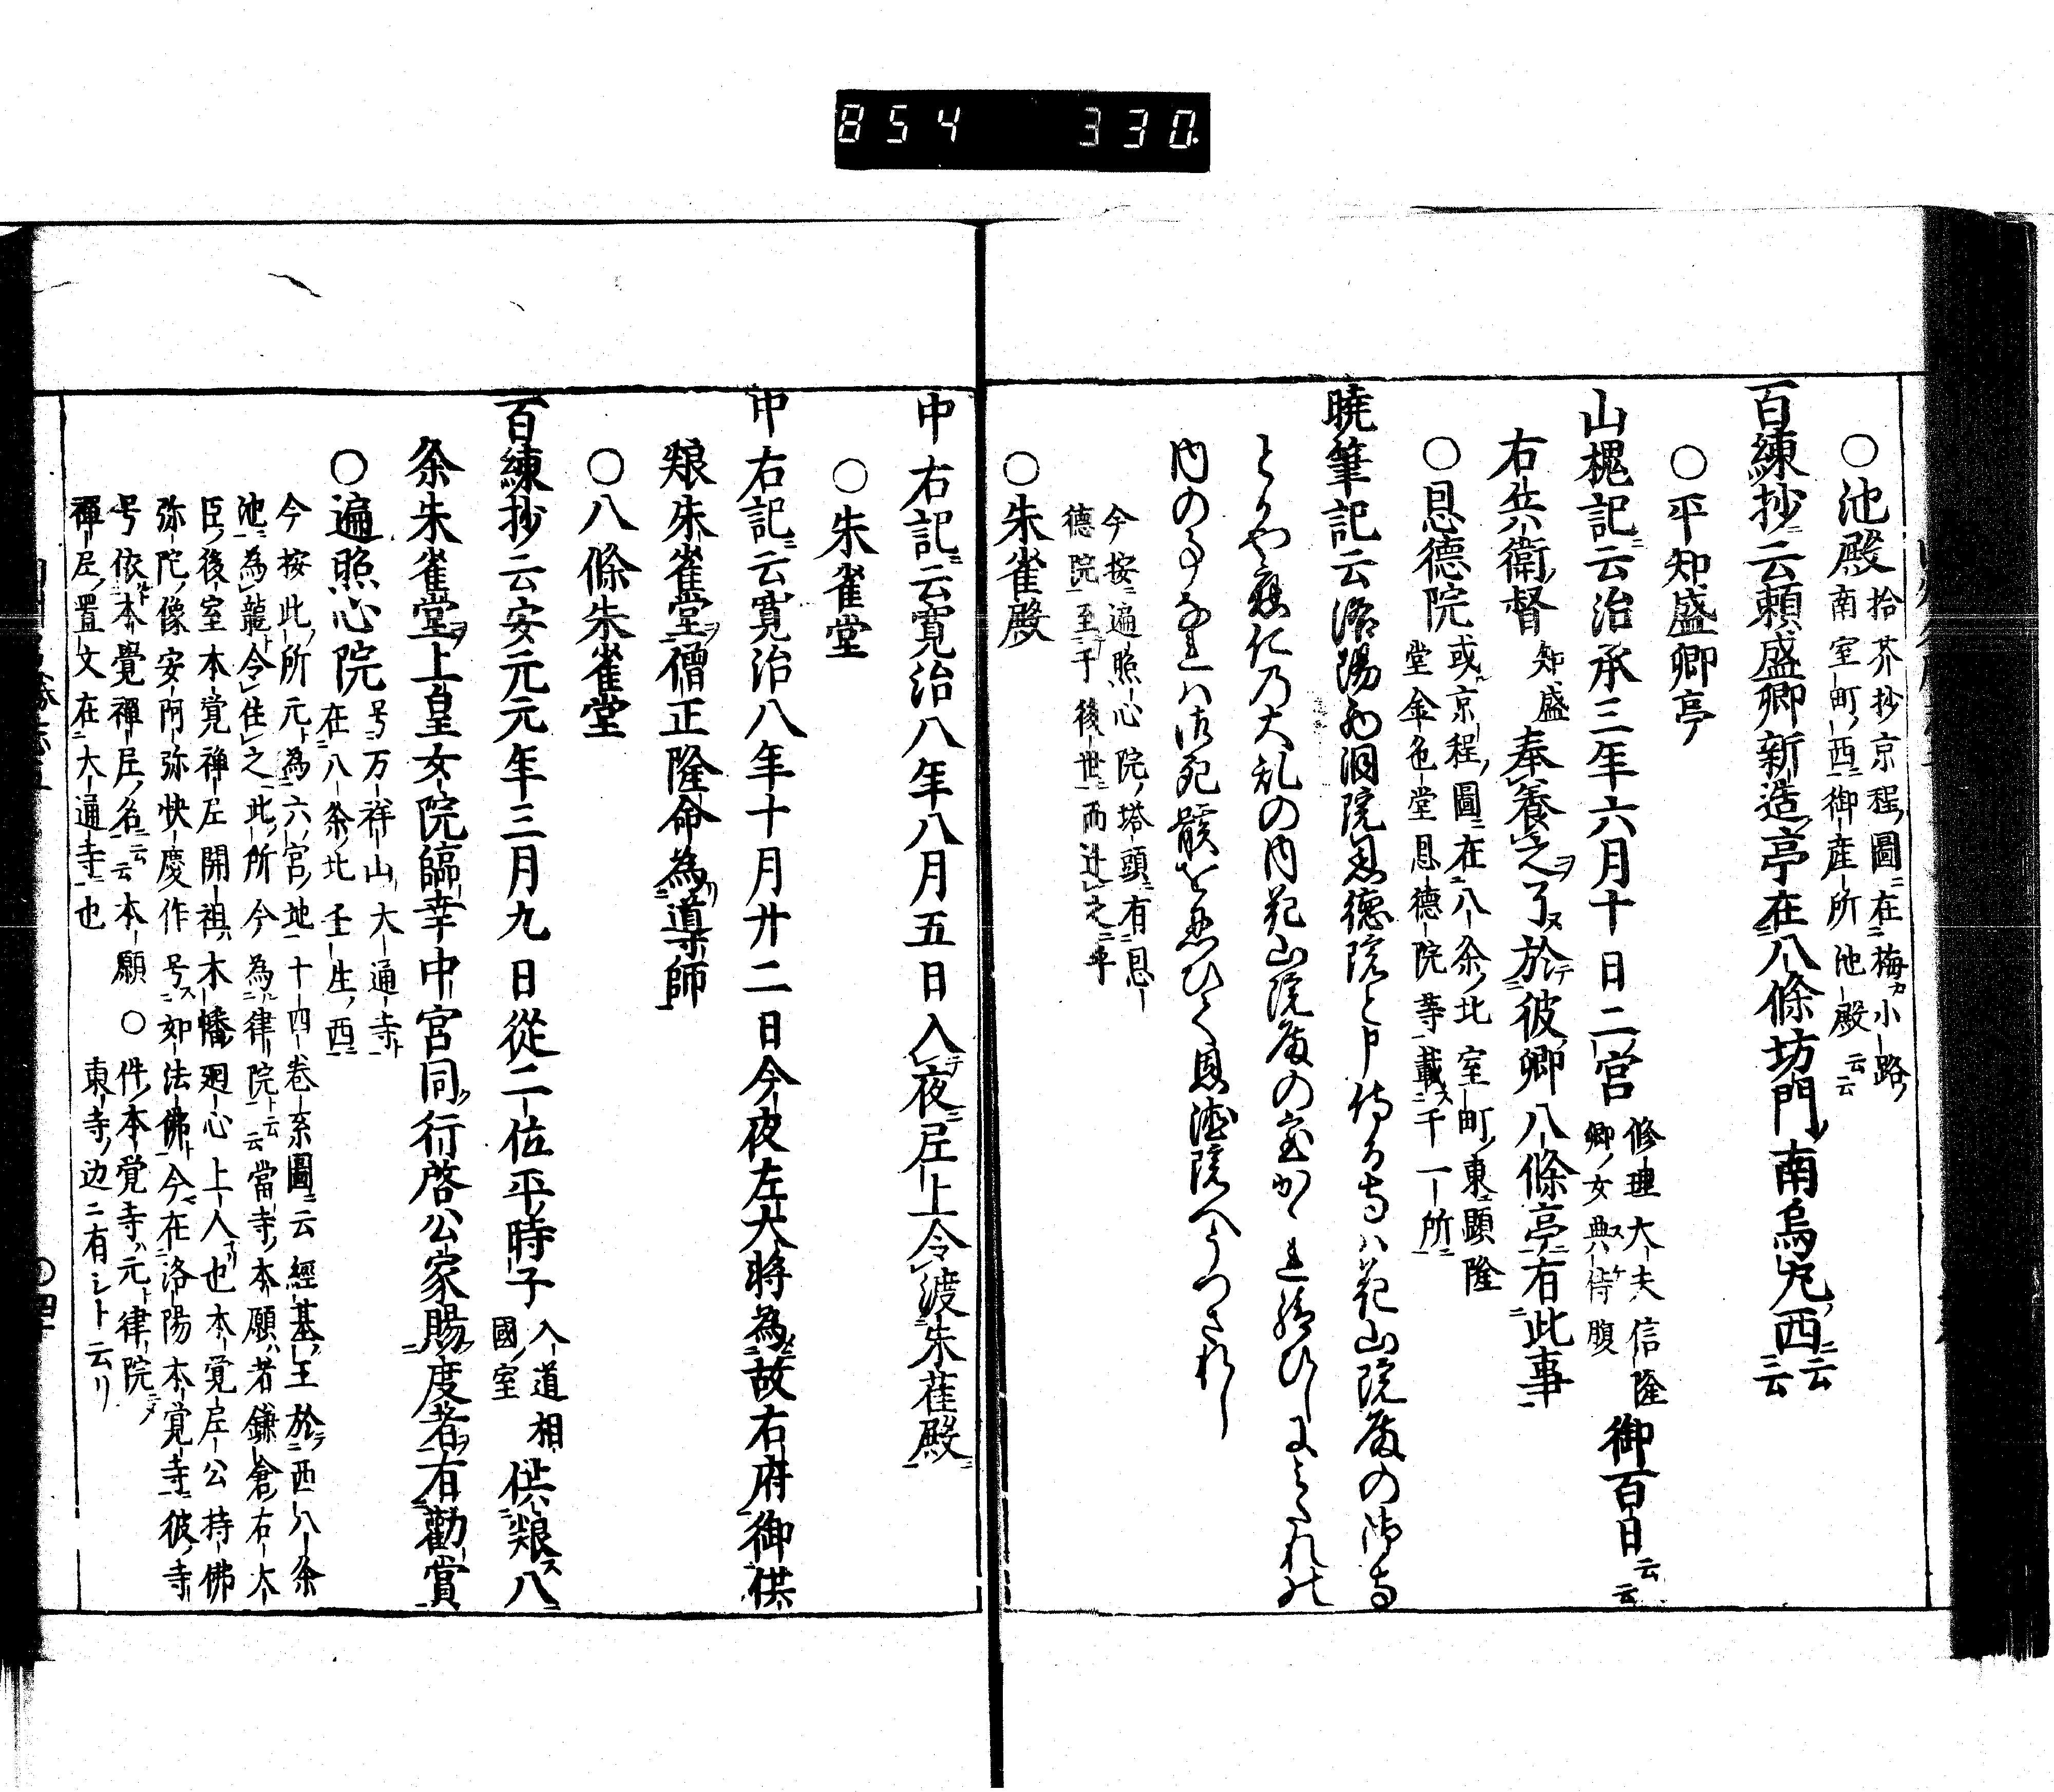 854 330
○池殿 拾芥抄京程圖在梅小路
南室町西御産所池殿云云
百練抄云頼盛卿新造亭在八條坊門南烏丸西云云
○平知盛卿亭
山槐記云治承三年六月十日二宮 修理大夫信隆
卿女典侍腹 御百日云云
右兵衛督 知盛 奉養之了於彼卿八條亭有此事
○恩德院 或京程圖在八条北室町東顯隆
堂金色堂恩德院等載千一所
暁筆記云洛陽
院恩德院と申侍る寺ハ花山院殿の御寺
とかや應仁乃大乱の内花山院殿の
内の
ハ御死骸を
ひて恩德院へうつされし
今按遍照心院塔頭有恩
德院至于後世而迁之乎
○朱雀殿
中右記云寛治八年八月五日入夜尼上令渡朱雀殿
○朱雀堂
中右記云寛治八年十月廿二日今夜左大将為故右府御供
粮朱雀堂僧正隆命為導師
○八條朱雀堂
百練抄云安元元年三月九日從二位平時子 入道相
國室 供粮八
条朱雀堂上皇女院臨幸中宮同行啓公家賜度者有勸賞
○遍照心院 号万祥山大通寺
在八条北壬生西
今按此所元為六宮地十四巻系圖云經基王於西八条
池為龍令住之此所今為律院云云當寺本願者鎌倉右大
臣後室本覚禅尼開祖木幡廻心上人也本覚尼公持佛
弥陀像安阿弥快慶作号如法佛今在洛陽本覚寺彼寺
号依本覺禅尼名云云本願 ○件本覚寺元律院
禅尼置文在大通寺也 東寺辺ニ有シト云リ
○四